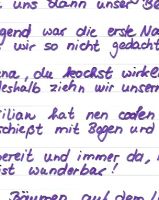 uns dann unser Be
gend war die erste Na
wir so nicht gedacht
na, du kochst wirkl
eshalb ziehn wir unsern
ilian hat nen coolen
schießt mit Bogen und
bereit und immer da,
ist wunderbar!
Bäumen auf dem